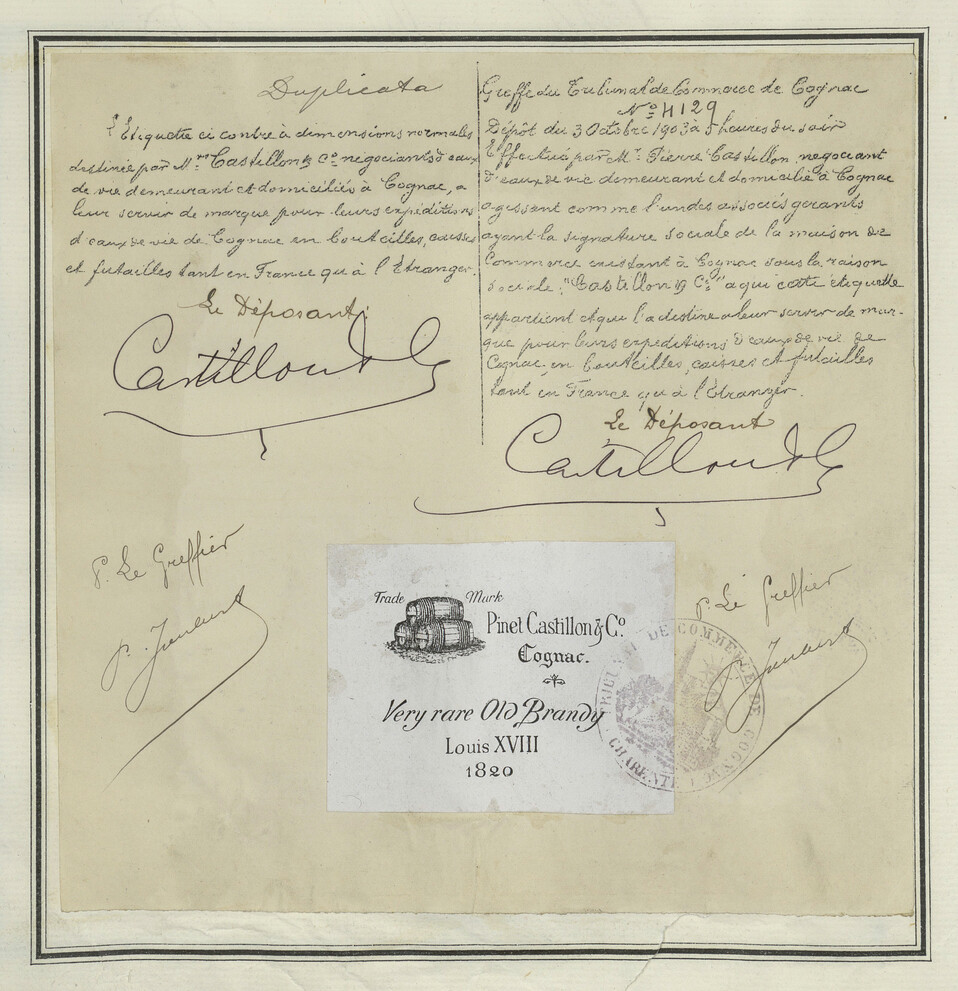 Duplicata
L'Etiquette ci contre à dimensions normales
destinée par Mrs Castillon & Co négociants d'eaux
de vie demeurant et domiciliés à Cognac, a
leur servir de marque pour leurs expéditions
d'eaux de vie de Cognac en bouteilles, caisses
et futailles tant en France qu'à l'Etranger.
Le Déposant
Castillon & Co
Greffe du Tribunal de Commerce de Cognac
No 4129
Dépôt du 3 Octobre 1903 à 5 heures du soir
Effectué par Mr Pierre Castillon, négociant
d'eaux de vie demeurant et domicilié à Cognac
agissant comme l'un des associés gérants
ayant la signature sociale de la maison de
Commerce existant à Cognac sous la raison
sociale: "Castillon & Co" à qui cette étiquette
appartient et qui l'a destine a leur servir de mar-
que pour leurs expéditions d'eaux de vie de
Cognac, en bouteilles, caisses et futailles
tant en France qu'à l'Etranger.
Le Déposant
Castillon & Co
P. Le Greffier
P. Le Greffier
Trade Mark
Pinet Castillon & Co.
Cognac.
Very rare Old Brandy
Louis XVIII
1820
TRIBUNAL DE COMMERCE DE COGNAC
CHARENTE